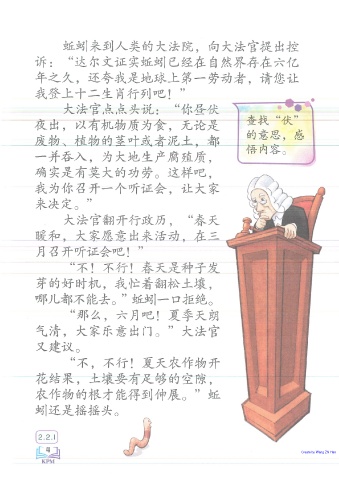 蚯蚓来到人类的大法院，向大法官提出控
诉：“达尔文证实蚯蚓已经在自然界存在六亿
年之久，还夸我是地球上第一劳动者，请您让
我登上十二生肖行列吧！”
大法官点点头说：“你昼伏
夜出，以有机物质为食，无论是
废物、植物的茎叶或者泥土，都
一并吞入，为大地生产腐殖质，
确实是有莫大的功劳。这样吧，
我为你召开一个听证会，让大家
来决定。”
查找“伏”
的意思，感
悟内容。
大法官翻开行政历，“春天
暖和，大家愿意出来活动，在三
月召开听证会吧！”
“不！不行！春天是种子发
芽的好时机，我忙着翻松土壤，
哪儿都不能去。”蚯蚓一口拒绝。
“那么，六月吧！夏季天朗
气清，大家乐意出门。”大法官
又建议。
“不，不行！夏天农作物开
花结果，土壤要有足够的空隙，
农作物的根才能得到伸展。”蚯
蚓还是摇摇头。
2.2.1
KPM